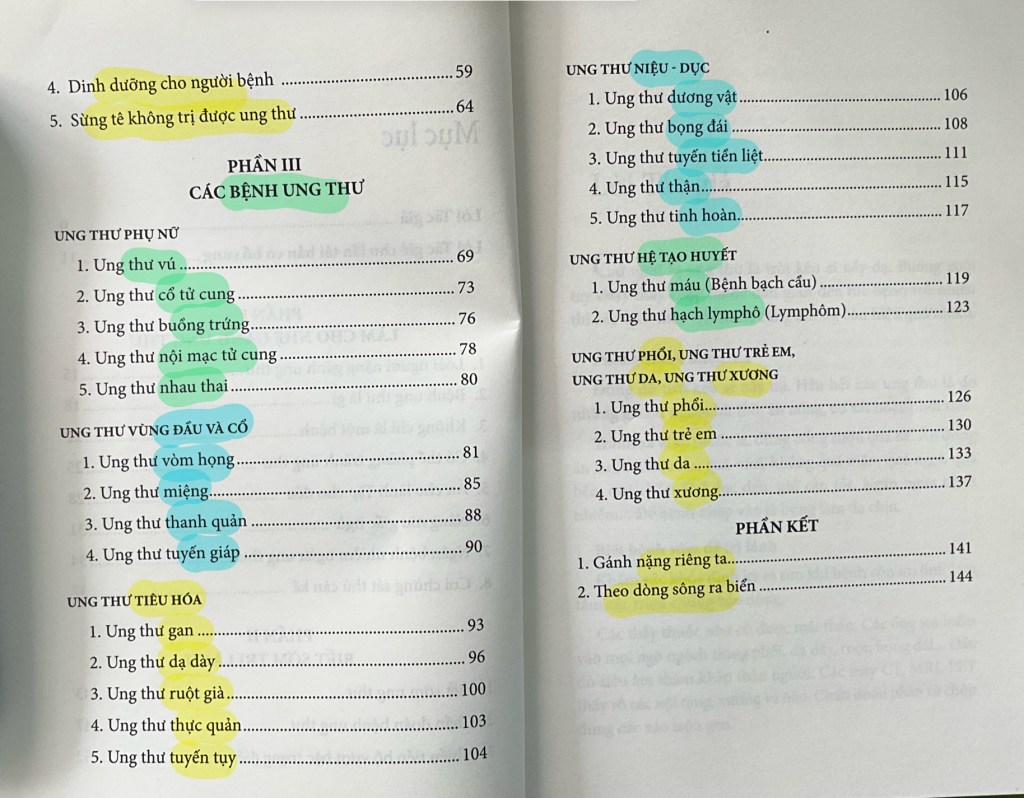 4. Dinh dưỡng cho người bệnh ........................................59
5. Sừng tê không trị được ung thư ...................................64
PHẦN III
CÁC BỆNH UNG THƯ
UNG THƯ PHỤ NỮ
1. Ung thư vú ..................................................................69
2. Ung thư cổ tử cung ....................................................73
3. Ung thư buồng trứng..................................................76
4. Ung thư nội mạc tử cung ...........................................78
5. Ung thư nhau thai ......................................................80
UNG THƯ VÙNG ĐẦU VÀ CỔ
1. Ung thư vòm họng.....................................................81
2. Ung thư miệng...........................................................85
3. Ung thư thanh quản ...................................................88
4. Ung thư tuyến giáp ....................................................90
UNG THƯ TIÊU HÓA
1. Ung thư gan ...............................................................93
2. Ung thư dạ dày ..........................................................96
3. Ung thư ruột già.......................................................100
4. Ung thư thực quản....................................................103
5. Ung thư tuyến tụy ....................................................104
UNG THƯ NIỆU - DỤC
1. Ung thư dương vật....................................................106
2. Ung thư bọng đái .....................................................108
3. Ung thư tuyến tiền liệt..............................................111
4. Ung thư thận............................................................115
5. Ung thư tinh hoàn.....................................................117
UNG THƯ HỆ TẠO HUYẾT
1. Ung thư máu (Bệnh bạch cầu) .................................119
2. Ung thư hạch lymphô (Lymphôm)...........................123
UNG THƯ PHỔI, UNG THƯ TRẺ EM,
UNG THƯ DA, UNG THƯ XƯƠNG
1. Ung thư phổi............................................................126
2. Ung thư trẻ em .........................................................130
3. Ung thư da ...............................................................133
4. Ung thư xương..........................................................137
PHẦN KẾT
1. Gánh nặng riêng ta....................................................141
2. Theo dòng sông ra biển ............................................144